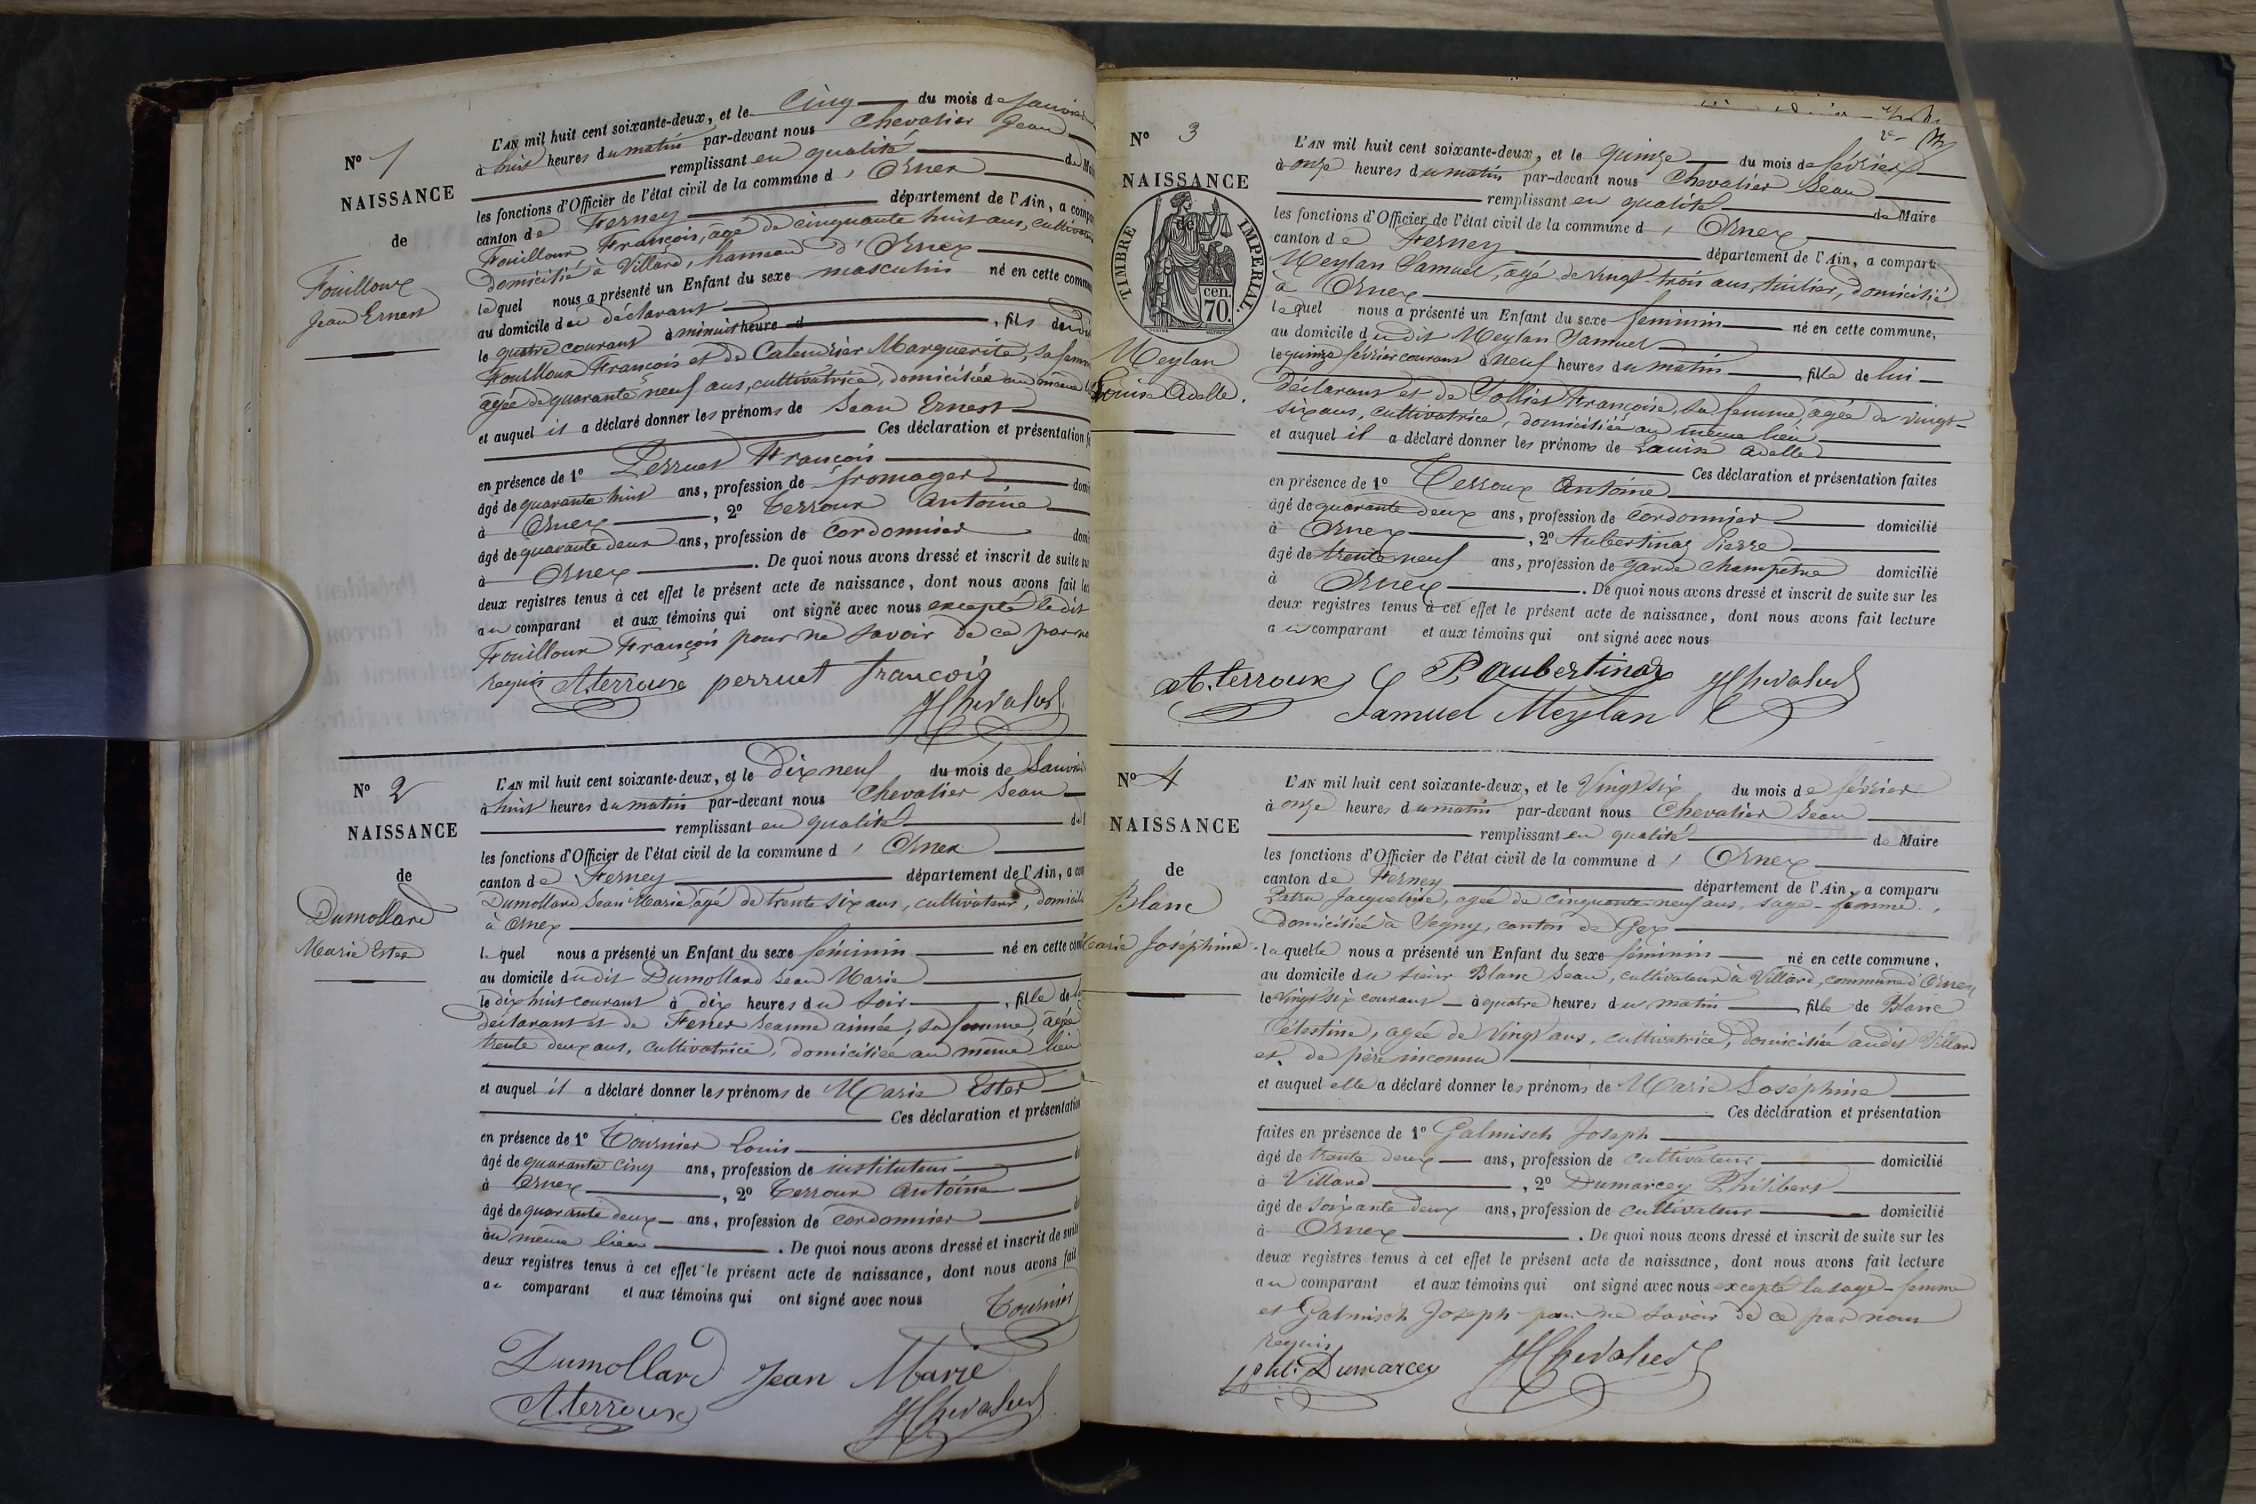 N° 1
NAISSANCE
de
Fouilloux
Jean Ernest
L'AN mil huit cent soixante-deux, et le Cinq du mois de Janvier
à huit heures du matin par-devant nous Chevalier Jean
remplissant en qualité de
les fonctions d'Officier de l'état civil de la commune d' Ornex
canton de Ferney département de l'Ain, a
Fouilloux François, âgé de cinquante huit ans,
domicilié à Villard, hameau d'Ornex
lequel nous a présenté un Enfant du sexe masculin né en cette
au domicile du déclarant
le quatre courant à minuit heure d , fils
Fouilloux François et de Marguerite, sa
âgée de quarante neuf ans, cultivatrice, domiciliée au même
et auquel il a déclaré donner les prénoms de Jean Ernest
Ces déclaration et présentation
en présence de 1° Perruet François
âgé de quarante huit ans, profession de fromager
à Ornex , 2° Terroux Antoine
âgé de quarante deux ans, profession de cordonnier
à Ornex . De quoi nous avons dressé et inscrit de suite
deux registres tenus à cet effet le présent acte de naissance, dont nous avons fait
au comparant et aux témoins qui ont signé avec nous excepté le dit
Fouilloux François pour ne savoir de ce par
requis A. terroux perruet françois
JChevalier
N° 2
NAISSANCE
de
Dumollard
Marie Ester
L'AN mil huit cent soixante-deux, et le Dix neuf du mois de
à huit heures du matin par-devant nous Chevalier Jean
remplissant en qualité
les fonctions d'Officier de l'état civil de la commune d' Ornex
canton de Ferney département de l'Ain, a
Dumollard Jean Marie âgé de trente six ans, cultivateur,
à Ornex
lequel nous a présenté un Enfant du sexe féminin né en cette
au domicile dudit Dumollard Jean Marie
le dix huit courant à dix heures du soir , fille de
déclarant et de Jeanne aimée, sa femme, âgée
trente deux ans, cultivatrice, domiciliée au même lieu
et auquel il a déclaré donner les prénoms de Marie Ester
Ces déclaration et présentation
en présence de 1° Tournier Louis
âgé de quarante cinq ans, profession de instituteur
à Ornex , 2° Terroux Antoine
âgé de quarante deux ans, profession de cordonnier
au même lieu . De quoi nous avons dressé et inscrit de suite
deux registres tenus à cet effet le présent acte de naissance, dont nous avons fait
au comparant et aux témoins qui ont signé avec nous
Tournier
Dumollard Jean Marie
A. terroux JChevalier
N° 3
NAISSANCE
de
TIMBRE IMPERIAL.
cen.
70.
Meylan
Louise Adelle.
L'AN mil huit cent soixante-deux, et le quinze du mois de février
à onze heures du matin par-devant nous Chevalier Jean
remplissant en qualité de Maire
les fonctions d'Officier de l'état civil de la commune d' Ornex
canton de Ferney département de l'Ain, a comparu
Meylan Samuel, âgé de vingt-trois ans, tuilier, domicilié
à Ornex
lequel nous a présenté un Enfant du sexe féminin né en cette commune,
au domicile dudit Meylan Samuel
le quinze février courant à neuf heures du matin , fille de lui
déclarant et de Françoise, sa femme, âgée de vingt-
six ans, cultivatrice, domiciliée au même lieu
et auquel il a déclaré donner les prénoms de Louise Adelle
Ces déclaration et présentation faites
en présence de 1° Terroux Antoine
âgé de quarante deux ans, profession de cordonnier domicilié
à Ornex , 2° Aubertinaz Pierre
âgé de trente neuf ans, profession de garde champêtre domicilié
à Ornex . De quoi nous avons dressé et inscrit de suite sur les
deux registres tenus à cet effet le présent acte de naissance, dont nous avons fait lecture
au comparant et aux témoins qui ont signé avec nous
A. terroux P. aubertinaz JChevalier
Samuel Meylan
N° 4
NAISSANCE
de
Blanc
Marie Joséphine.
L'AN mil huit cent soixante-deux, et le Vingt six du mois de février
à onze heures du matin par-devant nous Chevalier Jean
remplissant en qualité de Maire
les fonctions d'Officier de l'état civil de la commune d' Ornex
canton de Ferney département de l'Ain, a comparu
Jacqueline, agée de cinquante-neuf ans, sage-femme,
domiciliée à Segny, canton de Gex
laquelle nous a présenté un Enfant du sexe féminin né en cette commune,
au domicile du sieur Blanc Jean, cultivateur à Villard, commune d'Ornex
le Vingt six courant à quatre heures du matin , fille de Blanc
Célestine, agée de Vingt ans, cultivatrice, domiciliée audit Villard
et de père inconnu
et auquel elle a déclaré donner les prénoms de Marie Joséphine
Ces déclaration et présentation
faites en présence de 1° Galmisch Joseph
âgé de trente deux ans, profession de cultivateur domicilié
à Villard , 2° Dumarcey Philibert
âgé de soixante deux ans, profession de cultivateur domicilié
à Ornex . De quoi nous avons dressé et inscrit de suite sur les
deux registres tenus à cet effet le présent acte de naissance, dont nous avons fait lecture
au comparant et aux témoins qui ont signé avec nous excepté la sage-femme
et Galmisch Joseph pour ne savoir de ce par nous
requis
Dumarcey JChevalier